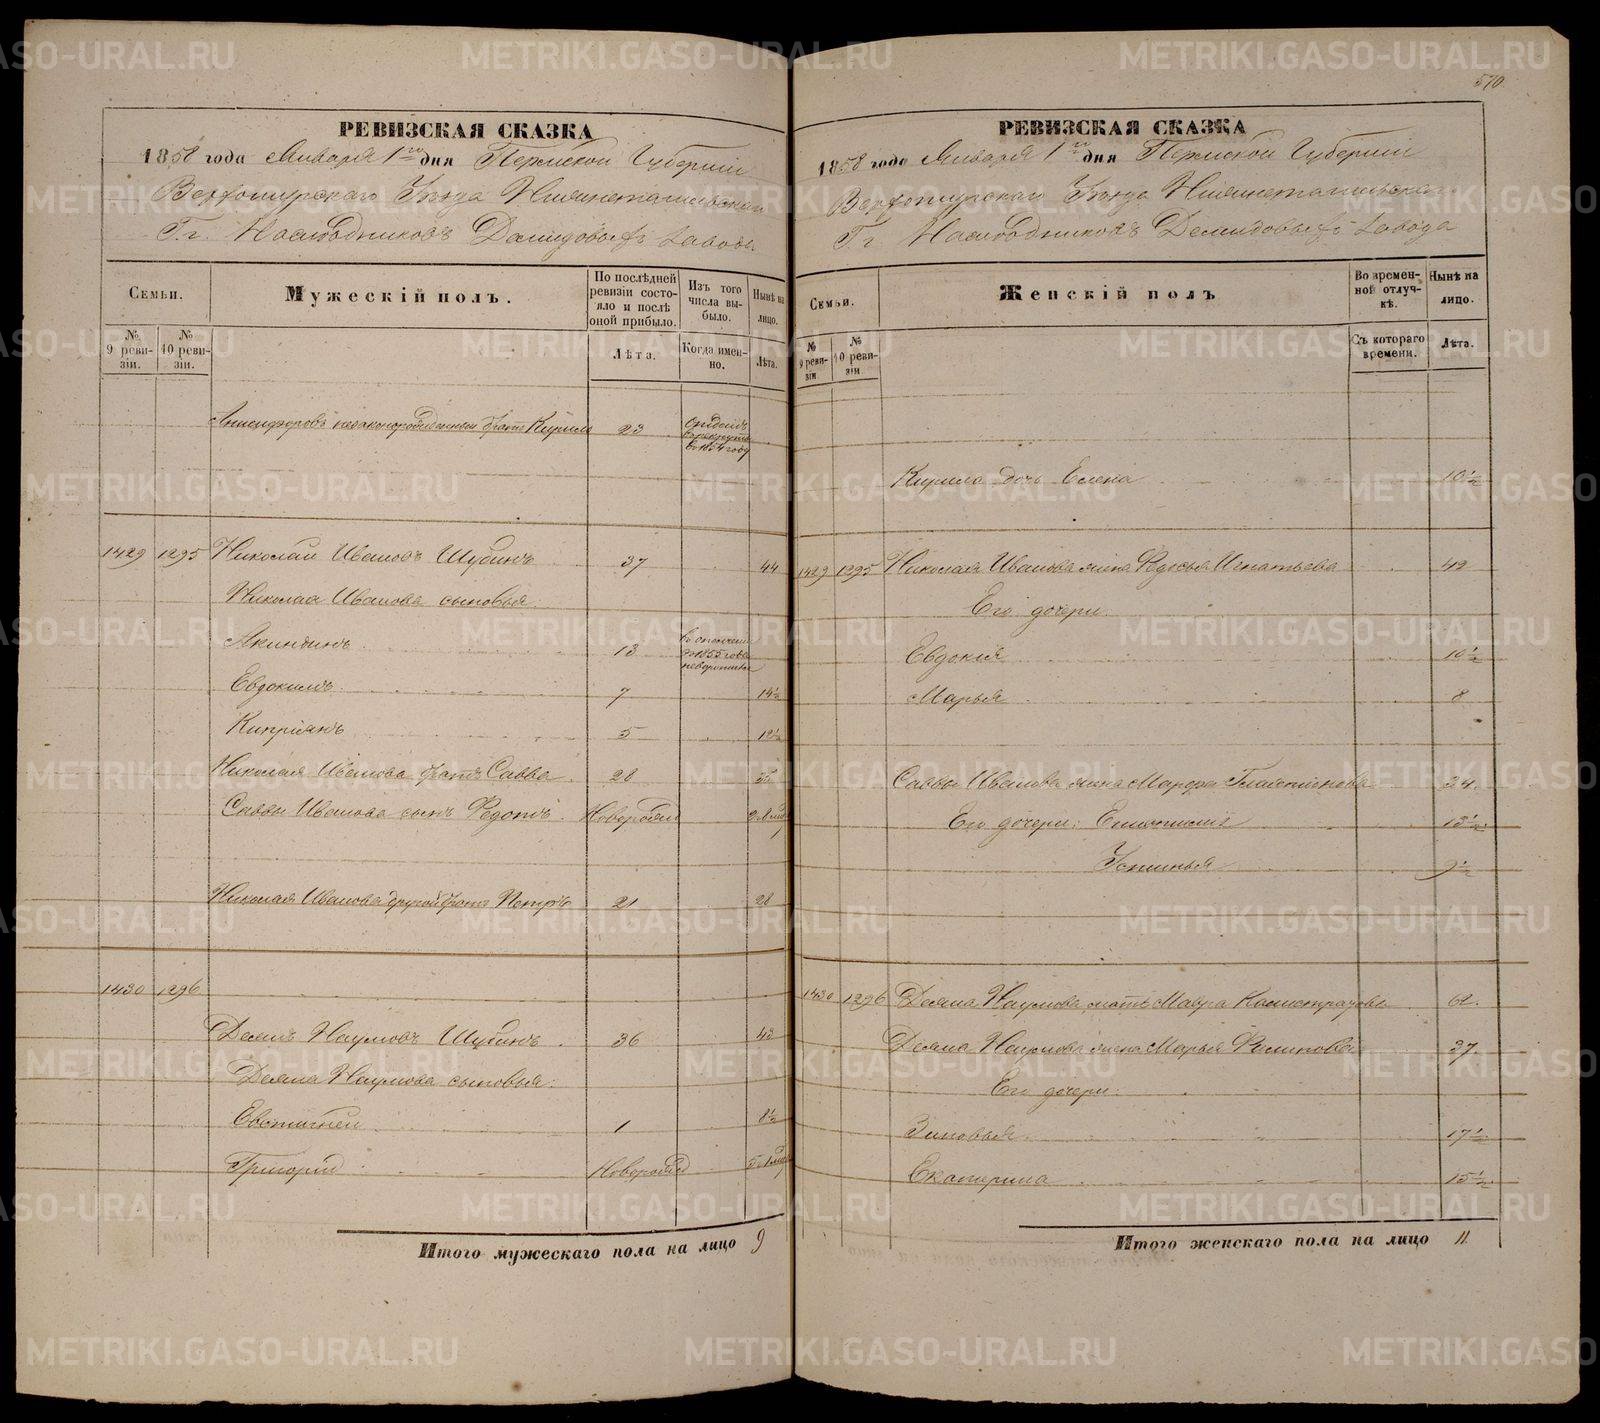 570.
РЕВИЗСКАЯ СКАЗКА
1858 года Января 1го дня Пермской Губернии
Верхотурскаго Уѣзда Нижнетагильскаго
Г.г. Наслѣдниковъ Демидовыхъ Завода
Семьи.
Мужескій полъ.
По послѣдней ревизіи состояло и послѣ оной прибыло.
Изъ того числа выбыло.
Нынѣ на лицо.
№ 9 ревизіи.
№ 10 ревизіи.
Лѣта.
Когда именно.
Лѣта.
незаконорожденный братъ Кирило 23 отданъ въ рекруты въ 1854 году
1429 1295 Николай Ивановъ Шубинъ 37 44
Николая Иванова сыновья
Акиндинъ 13 въ 1855 года
Евдокимъ. 7 14½
Кипріянъ 5 12½
Николая Иванова братъ Савва 28 35
Саввы Иванова сынъ Федотъ. Новорожд
Николая Иванова другой братъ Петръ 21 28
1430 1296
Демидъ Наумовъ Шубинъ. 36 43
Наумова сыновья:
Евстигней 1 8½
Григорій Новорожд
Итого мужескаго пола на лицо 9
РЕВИЗСКАЯ СКАЗКА
1858 года Января 1го дня Пермской Губерніи
Верхотурскаго Уѣзда Нижнетагильскаго
Г.г. Наслѣдниковъ Демидовыхъ Завода
Семьи.
Женскій полъ
Во временной отлучкѣ.
Нынѣ на лицо.
№ 9 ревизіи
№ 10 ревизіи.
Съ котораго времени.
Лѣта.
Кирила дочь Елена 10½
1429 1295 Николая Иванова жена Федосья Игнатьева 42
Его дочери:
Евдокія 10½
Марья 8
Саввы Иванова жена Марфа 34.
Его дочери: 13½
Устинья 9½
1430 1296 Наумова мать Мавра Калистратова 62.
Наумова жена Марья Филипова 37.
Его дочери:
Зиновья 17½
Екатерина 15½
Итого женскаго пола на лицо 11
METRIKI.GASO-URAL.RU